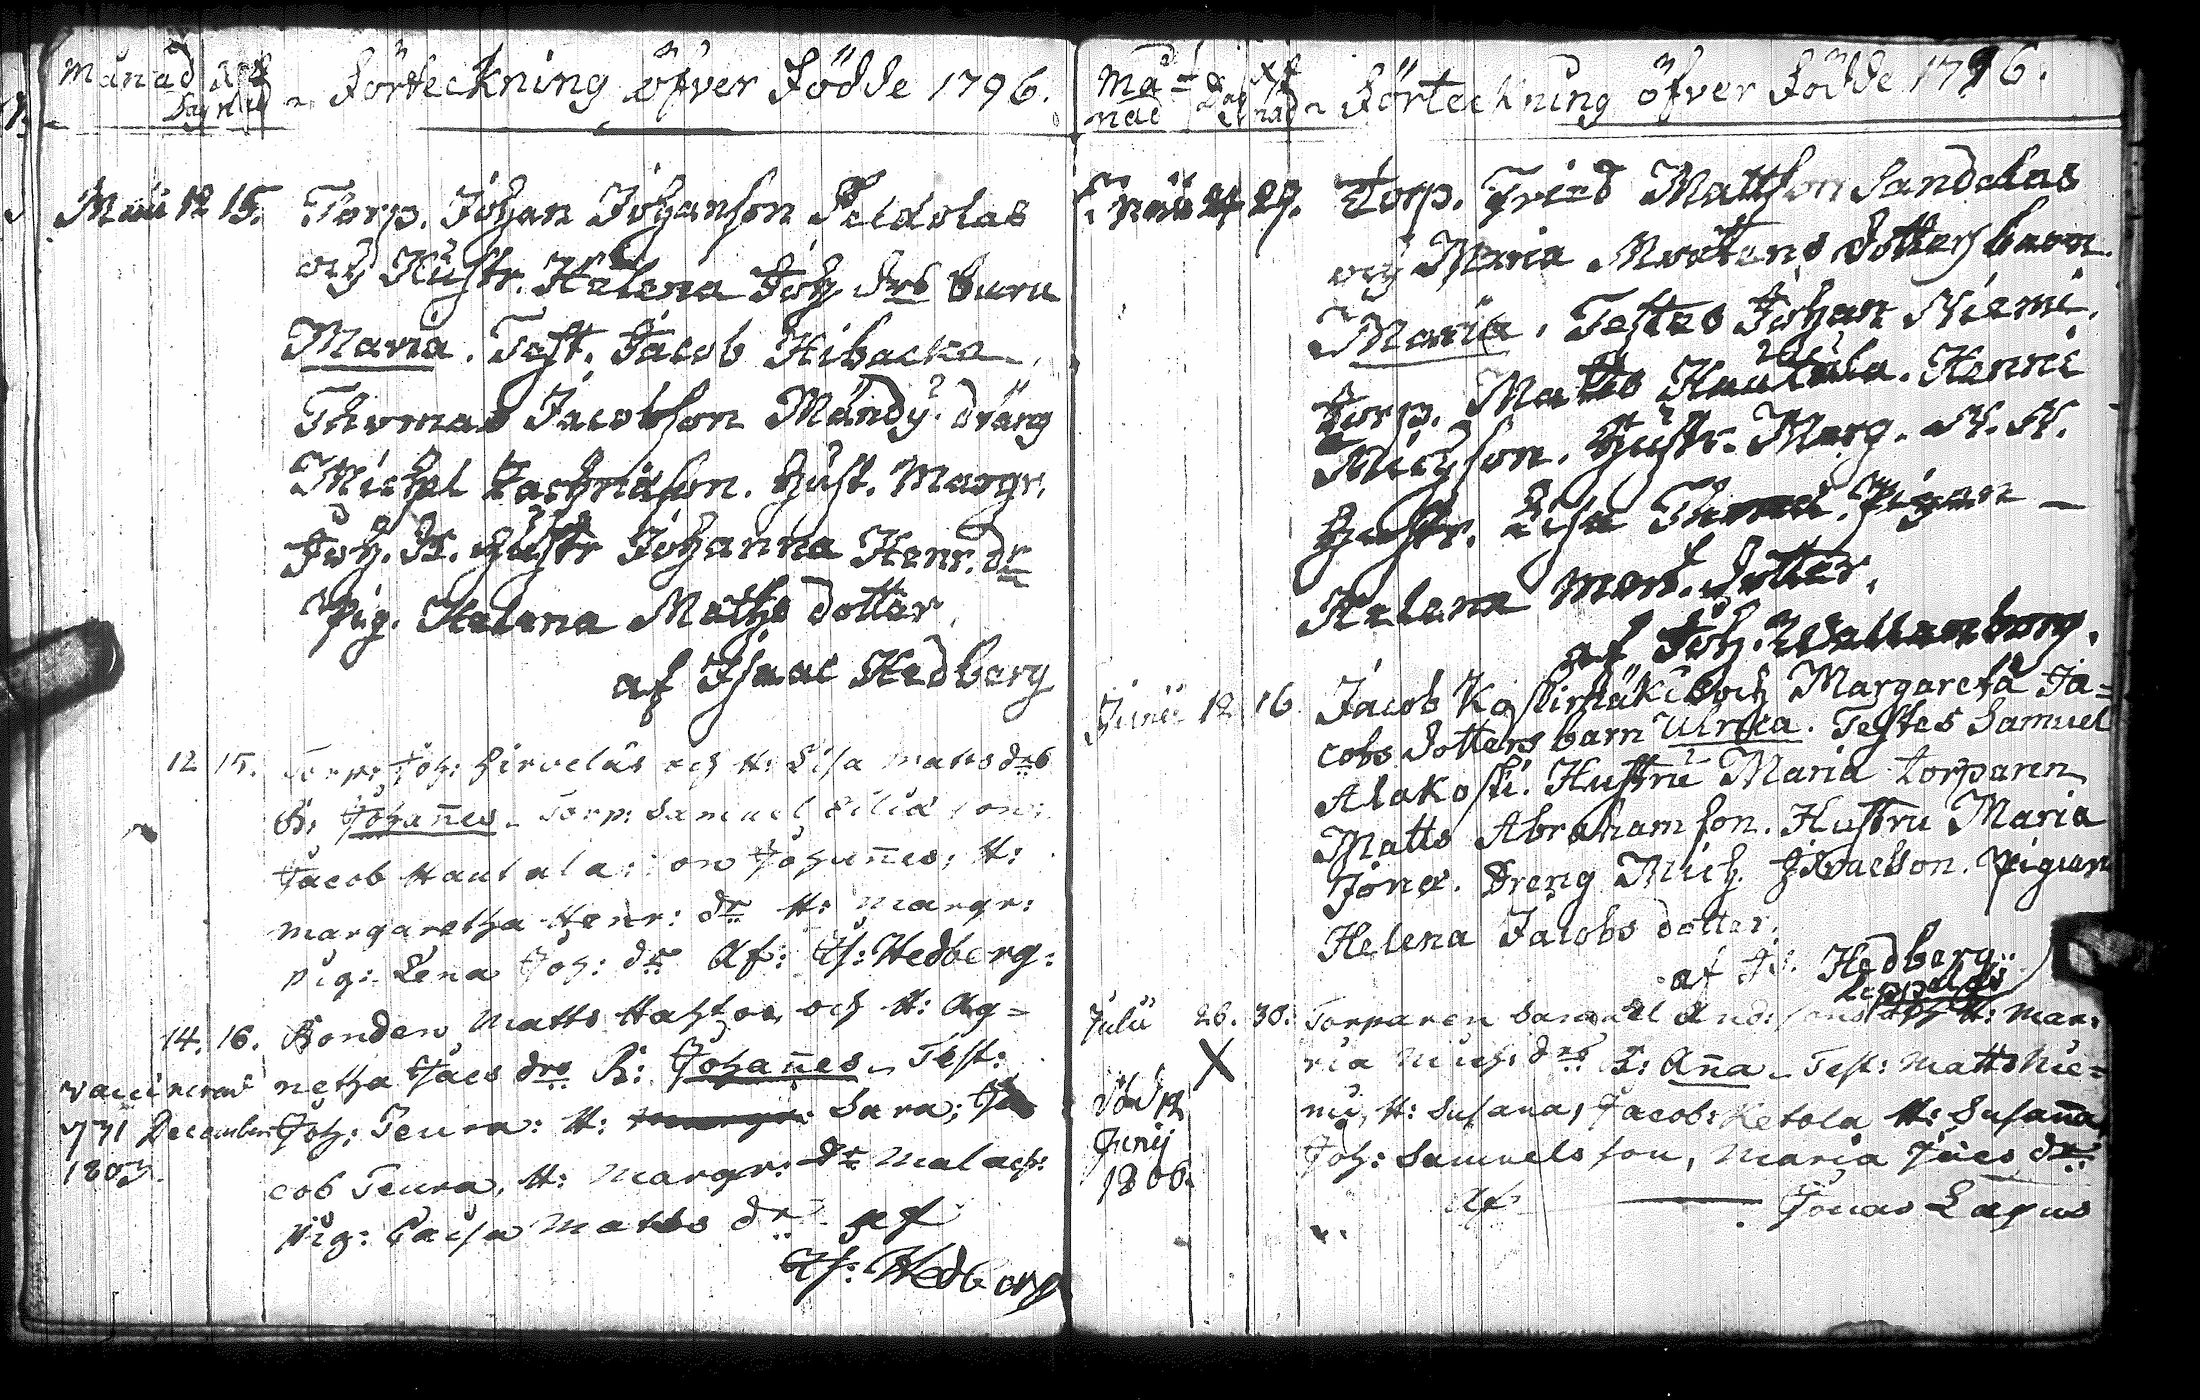 Månad Dag Förteckning öfver Födde 1796.
Maii 12 15. Torp. Johan Johanson Peldolas
och Hustr. Helena Joh. drs barn
Maria. Test. Jacob Hibacka
Thomas Jacobson Måndy. dräng
Michel Zachrisson. Hust. Margr.
Joh. D. Hustr Johanna Henr. dr
Pig. Helena Matts dotter
af Isaac Hedberg
12 15. Torp: Joh: Hirvelas och H: Lisa Matts drs
B: Johañes. Torp: Samuel
Jacob Hautala: Johañes; H:
Margaretha Henr: dr H: Margr:
Pig: Lena Joh: dr Af: Is: Hedberg:
14. 16. Bonden Matts och H: Ag=
netha Jacs drs B: Johañes. Test:
Vaccinerad
Joh: Teura: H: Sara; Ja
d 31 December
1803.
cob Teura, H: Margr: dr Malach:
Pig: Caisa Matts dr af
Is: Hedberg
Månad Dag Förteckning öfver Födde 1796.
Maii 24 29. Torp. Mattson Sandelas
och Maria Mårtens dotters barn
Maria. Testes Johan Niemi.
Torp. Matts Hautala. Henric
Michson. Hustr. Marg. N. N.
Hustr. Lisa Pigan
Helena Mart. dotter.
af Joh. Wallenberg.
Junii 12 16 Jacob Koskimäki och Margareta Ja=
cobs dotters barn Ulrica. Testes Samuel
Alakoski. Hustru Maria torparen
Matts Abrahamson. Hustru Maria
Jöns. Dreng Mich. Isaacson. Pigan
Helena Jacobs dotter.
af Is. Hedberg.
Leppälas
Julii 26. 30. Torparen Samuel And: sons och H: Mar=
ria Mich: drs B: Aña. Test: Matts Nie=
mi, H: Susana, Jacob: Ketola H: Susana,
död 12
Junij
1806.
Joh: Samuelsson, Maria Jacs dr
Af Jonas Lagus